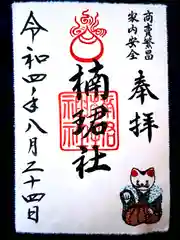 商売繁昌
家内安全
奉拝
楠珺社
令和四年八月二十四日